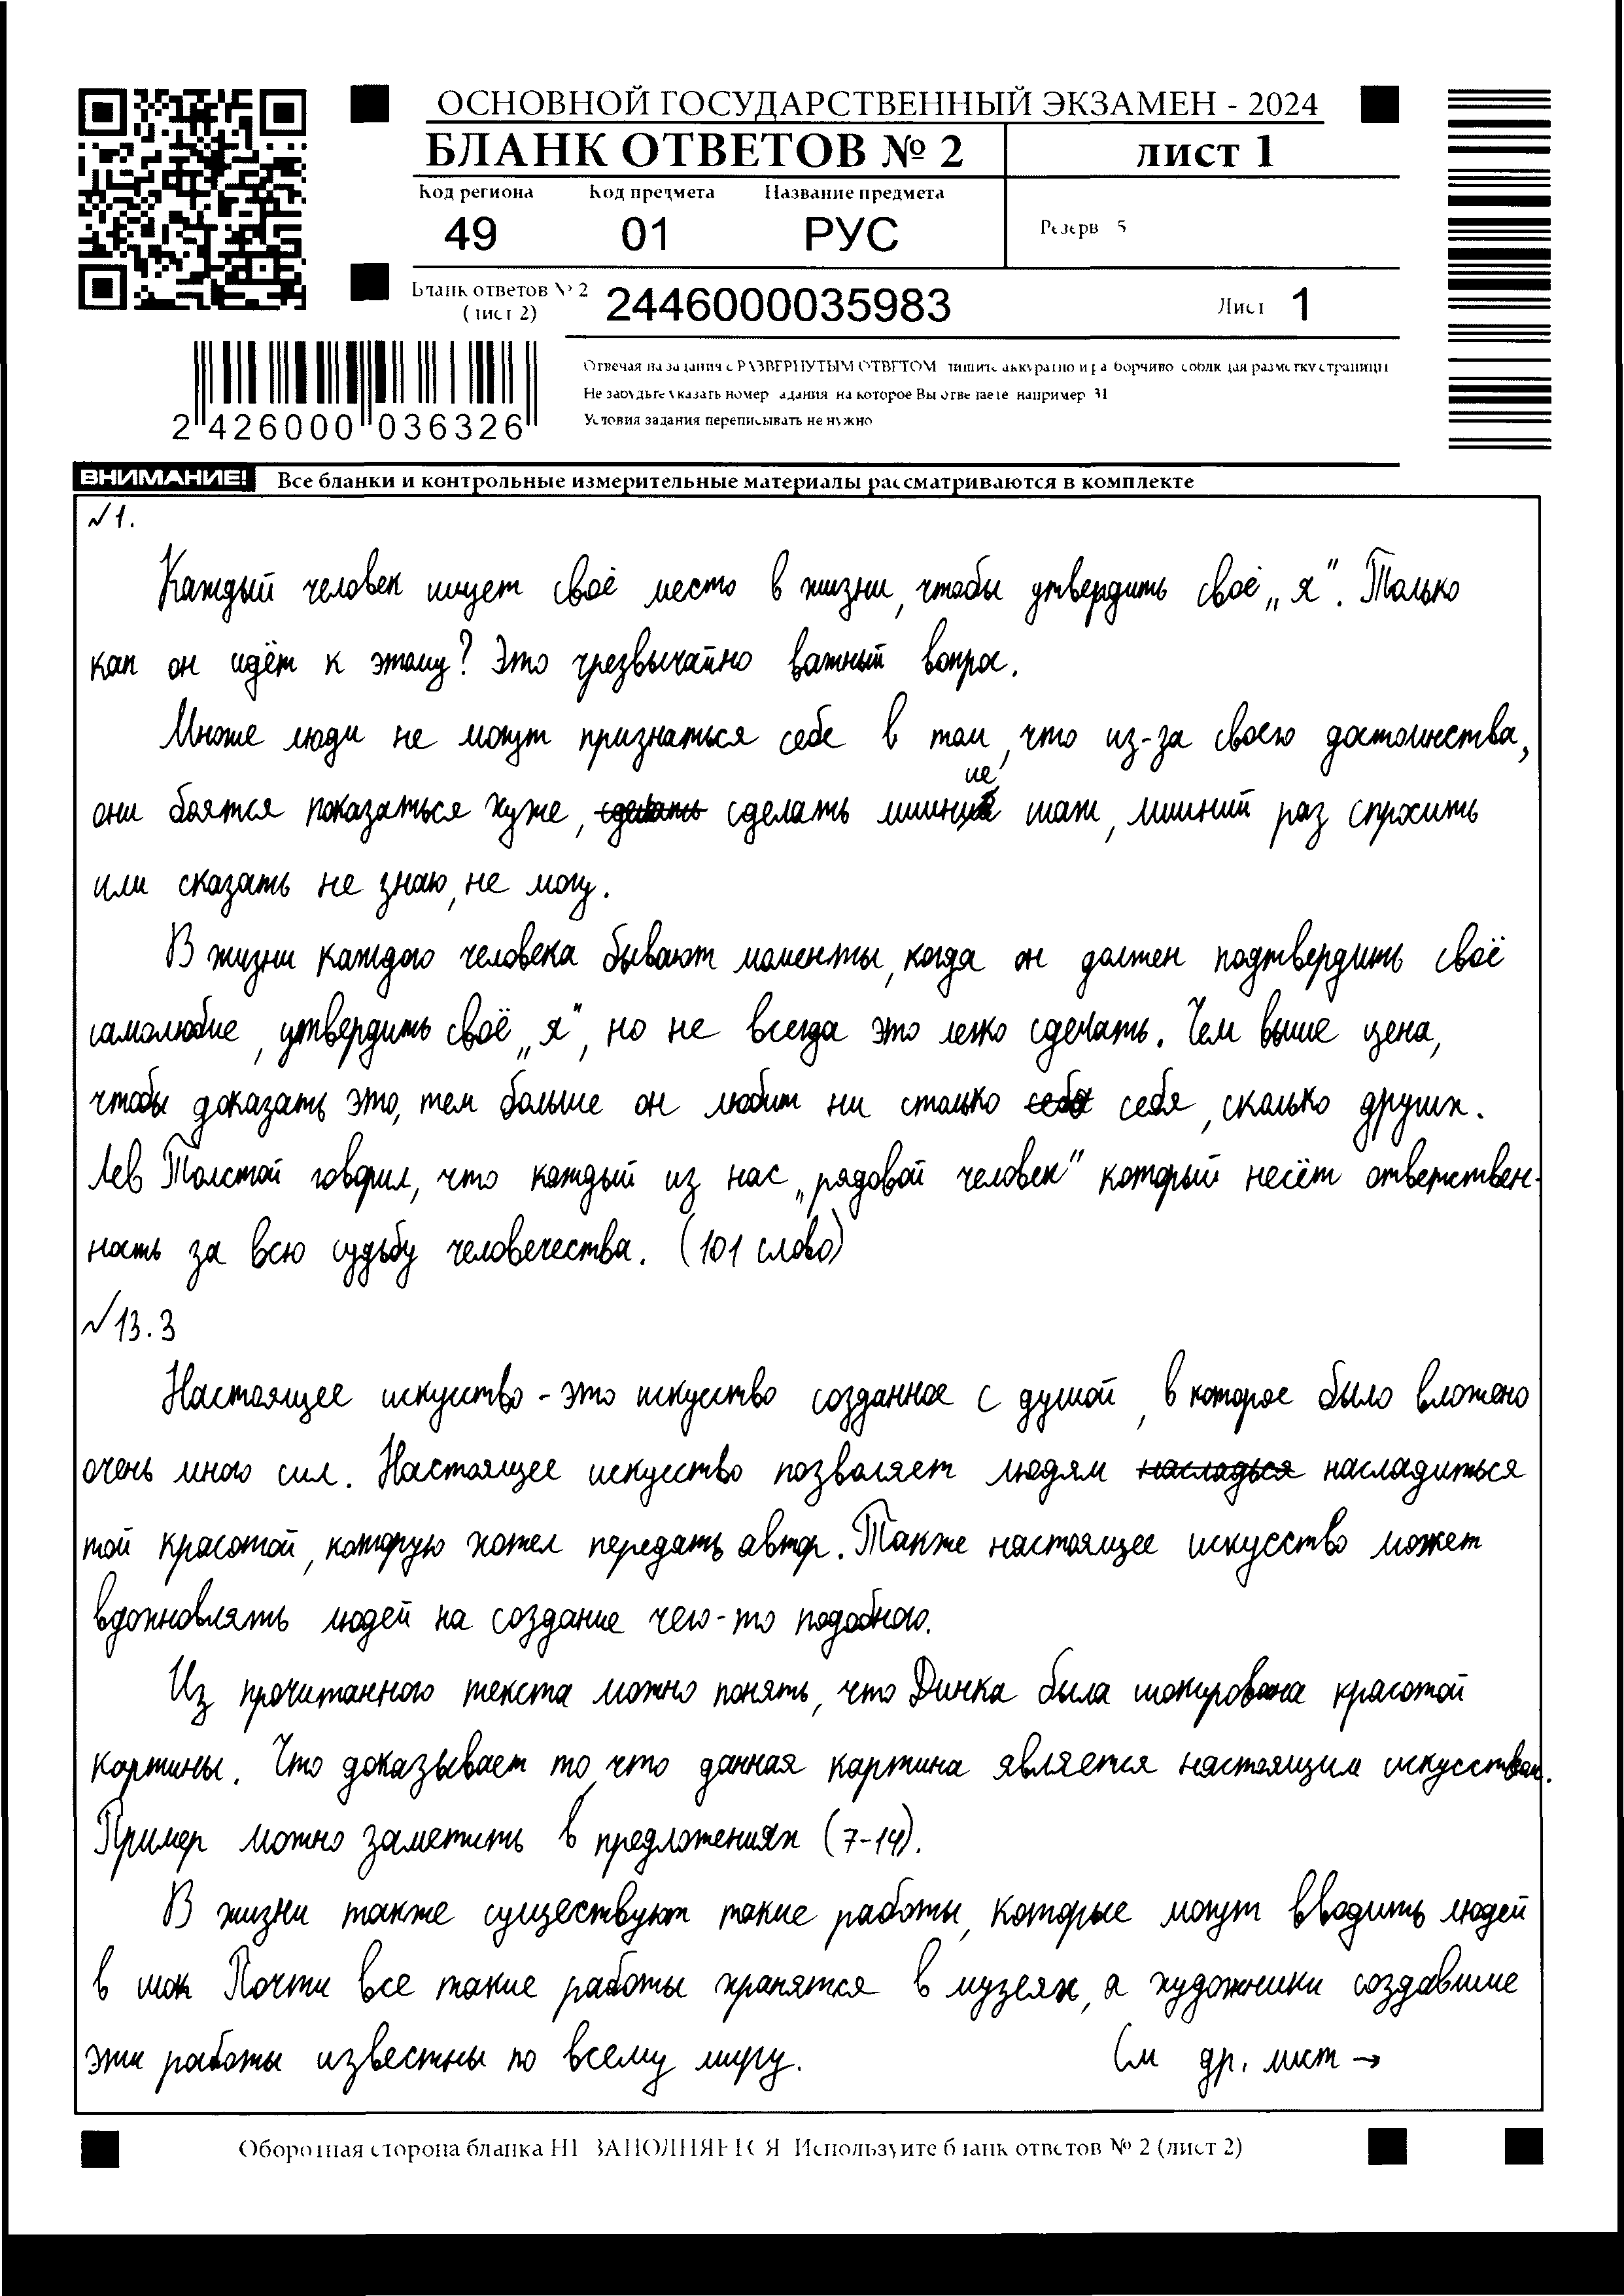 ОСНОВНОЙ ГОСУДАРСТВЕННЫЙ ЭКЗАМЕН - 2024
БЛАНК ОТВЕТОВ № 2
лист 1
Код региона Код предмета Название предмета
49 01 РУС
Резерв 5
Бланк ответов № 2
(лист 2)
2446000035983
Лист 1
Отвечая на задания с РАЗВЕРНУТЫМ ОТВЕТОМ пишите аккуратно и разборчиво соблюдая разметку страницы
Не забудьте указать номер задания на которое Вы отвечаете например 31
Условия задания переписывать не нужно
2 426000 036326
ВНИМАНИЕ! Все бланки и контрольные измерительные материалы рассматриваются в комплекте
√1.
Каждый человек ищет своё место в жизни, чтобы утвердить своё „я". Только
как он идёт к этому? Это чрезвычайно важный вопрос.
Многие люди не могут признаться себе в том, что из-за своего достоинства,
они боятся показаться хуже, сделать сделать лишние шаги, лишний раз спросить
или сказать не знаю, не могу.
В жизни каждого человека бывают моменты, когда он должен подтвердить своё
самолюбие, утвердить своё „я", но не всегда это легко сделать. Чем выше цена,
чтобы доказать это, тем больше он любит ни столько себя себя, сколько других.
Лев Толстой говорил, что каждый из нас „рядовой человек" который несёт ответствен-
ность за всю судьбу человечества. (101 слово)
√13.3
Настоящее искусство - это искусство созданное с душой, в которое было вложено
очень много сил. Настоящее искусство позволяет людям насладься насладиться
той красотой, которую хотел передать автор. Также настоящее искусство может
вдохновлять людей на создание чего-то подобного.
Из прочитанного текста можно понять, что Динка была шокирована красотой
картины. Что доказывает то, что данная картина является настоящим искусством.
Пример можно заметить в предложениях (7-14).
В жизни также существуют такие работы, которые могут вводить людей
в шок Почти все такие работы хранятся в музеях, а художники создавшие
эти работы известны по всему миру.
См др. лист →
Оборотная сторона бланка НЕ ЗАПОЛНЯЕТСЯ Используйте бланк ответов № 2 (лист 2)